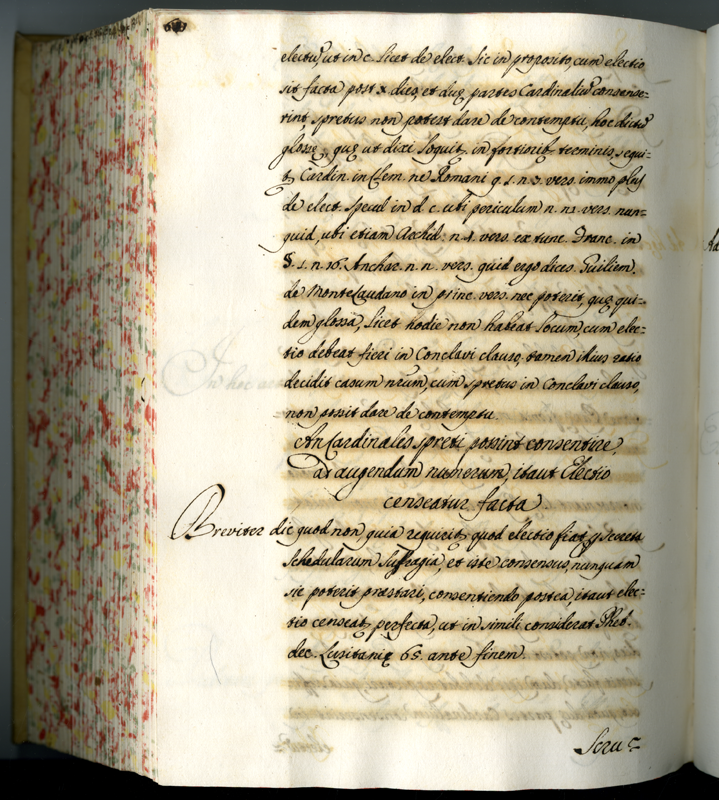 electus, ut in c. licet de elect. sic in proposito, cum electio
sit facta post x dies, et duę partes Cardinaliũ consense=
rint, spretus non potest dare de contemptu, hoc dictũ
glossę, quę ut dixi loquit, in fortioribꝫ terminis, sequi=
t, Cardin. in Clem. ne Romani q. 1. n. 3. vers. immo plus
de elect. Specul in d. c. ubi periculum n. n2. vers. nun=
quid, ubi etiam Archid. n. 4. vers. ex tunc. Franc. in
§. 1. n. 16. Anchar. n. n. vers. quid ergo dices. Guiliem.
de Monte Laudano in princ. vers. nec poterit, quę qui=
dem glossa, licet hodie non habeat locum, cum elec=
tio debeat fieri in Conclavi clauso, tamen illius ratio
decidit casum nrũm, cum spretus in Conclavi clauso,
non possit dare de contemptu.
An Cardinales spreti possint consentire,
ad augendum numerum, itaut Electio
censeatur facta
Breviter dic quod non, quia requirit, quod electio fiat p secreta
schedularum suffragia, et iste consensus, nunquam
sic poterit præstari, consentiendo postea, itaut elec=
tio censeat, perfecta, ut in simili considerat Pheb.
dec. Lusitanię 65. ante finem.
Scru=